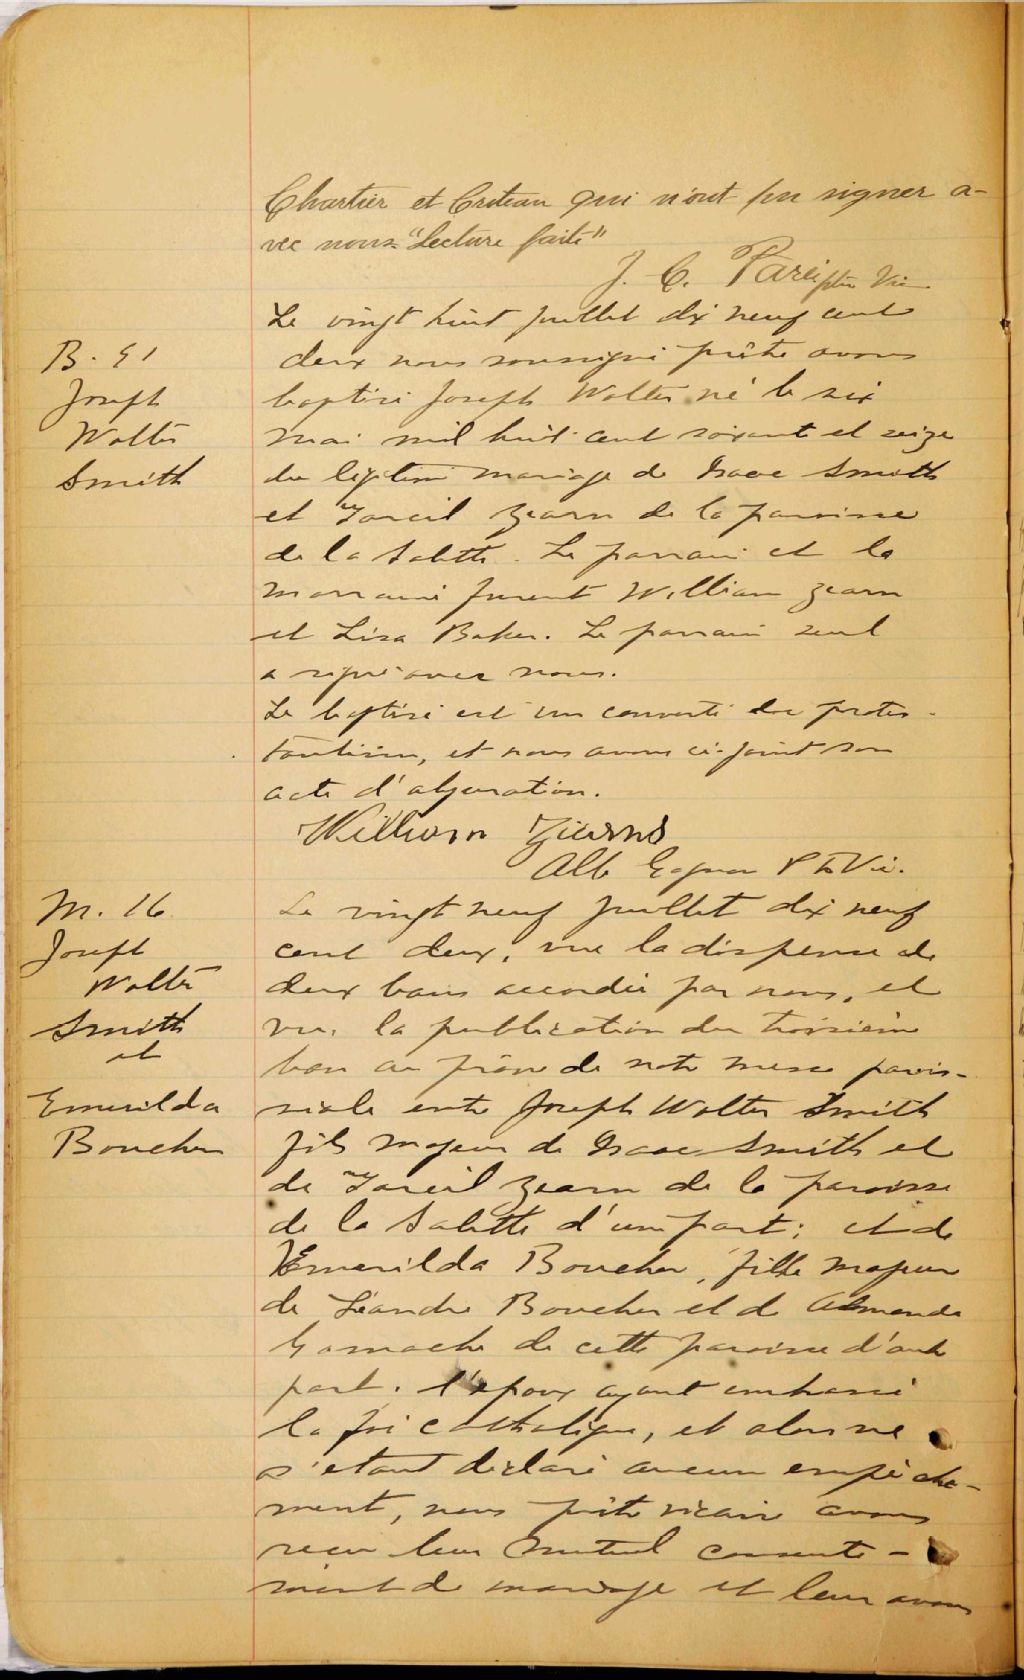 Chartier et Croteau qui n'ont pu signer a-
vec nous "Lecture faite"
J. C. Paré ptre Vic
Le vingt huit juillet dix neuf cent
B. 51
deux nous soussigné prêtre avons
Joseph
baptisé Joseph Walter né le six
Walter
mai mil huit cent soixante et seize
Smith
du légitime mariage de Isaac Smith
et Zearn de la paroisse
de la Salette. Le parrain et la
marraine furent William Zearn
et Lisa Baker. Le parrain seul
a signé avec nous.
Le baptisé est un converti du protes-
tantisme, et nous avons ci-joint son
acte d'abjuration.
William
Alb Gagnon Ptr Vic.
M. 16
Le vingt neuf juillet dix neuf
Joseph
cent deux, vue la dispense de
Walter
deux bans accordée par nous, et
Smith
vu la publication du troisième
et
ban au prône de notre messe parois-
Emerilda
siale entre Joseph Walter Smith
Boucher
fils majeur de Isaac Smith et
de Zearn de la paroisse
de la Salette d'une part; et de
Emerilda Boucher, fille majeure
de Léandre Boucher et de Almanda
Gamache de cette paroisse d'autre
part. l'époux ayant embrassé
la foi catholique, et alors ne
s'étant déclaré aucun empêche-
ment, nous prêtre vicaire avons
reçu leur mutuel consente-
ment de mariage et leur avons